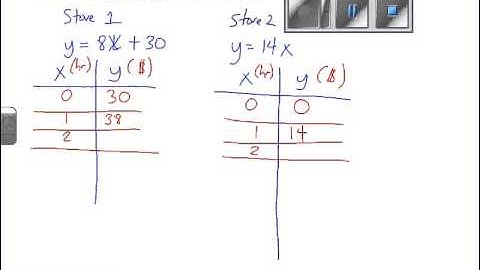 Store 1
y = 8x + 30
x (hr) y ($)
0 30
1 38
2
Store 2
y = 14x
x (hr) y ($)
0 0
1 14
2